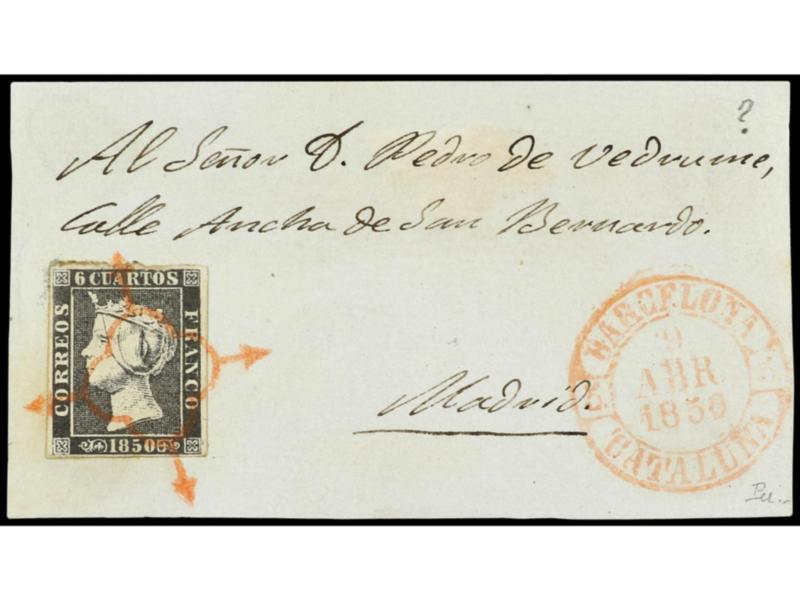 ?
Al Señor D. Pedro de Vedrume,
Calle Ancha de San Bernardo.
6 CUARTOS
CORREOS
FRANCO
1850
Madrid.
BARCELONA
9
ABR
1850
CATALUÑA